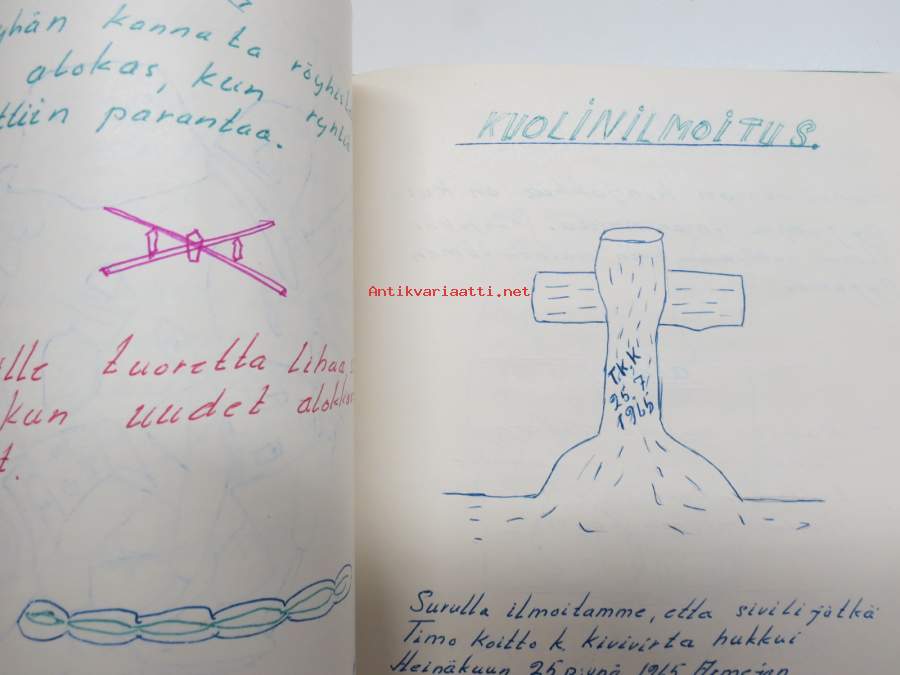 yhän kannata röyhis
alokas, kun ryhd
ttiin parantaa.
lle tuoretta lihaa,
kun uudet alok
t.
KUOLINILMOITUS.
Antikvariaatti.net
T.K.K
25.7
1965
Surulla ilmoitamme, että siviilijätkä
Timo Koitto k. Kivivirta hukkui
Heinäkuun 25 p:vnä 1965 Armeijan